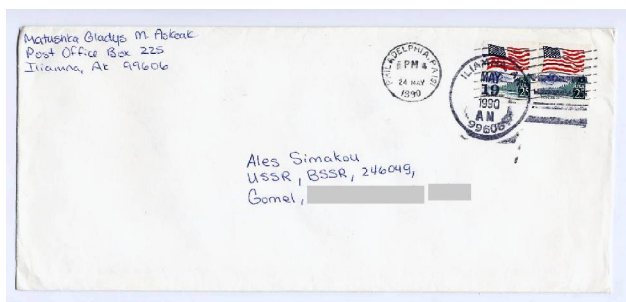 Matushka Gladys M. Askoak
Post Office Box 225
Iliamna, Ak 99606
PHILADELPHIA, PA
PM
24 MAY
1990
ILIAMNA
MAY
19
1990
AM
99606
25
25
Ales Simakou
USSR, BSSR, 246049,
Gomel,